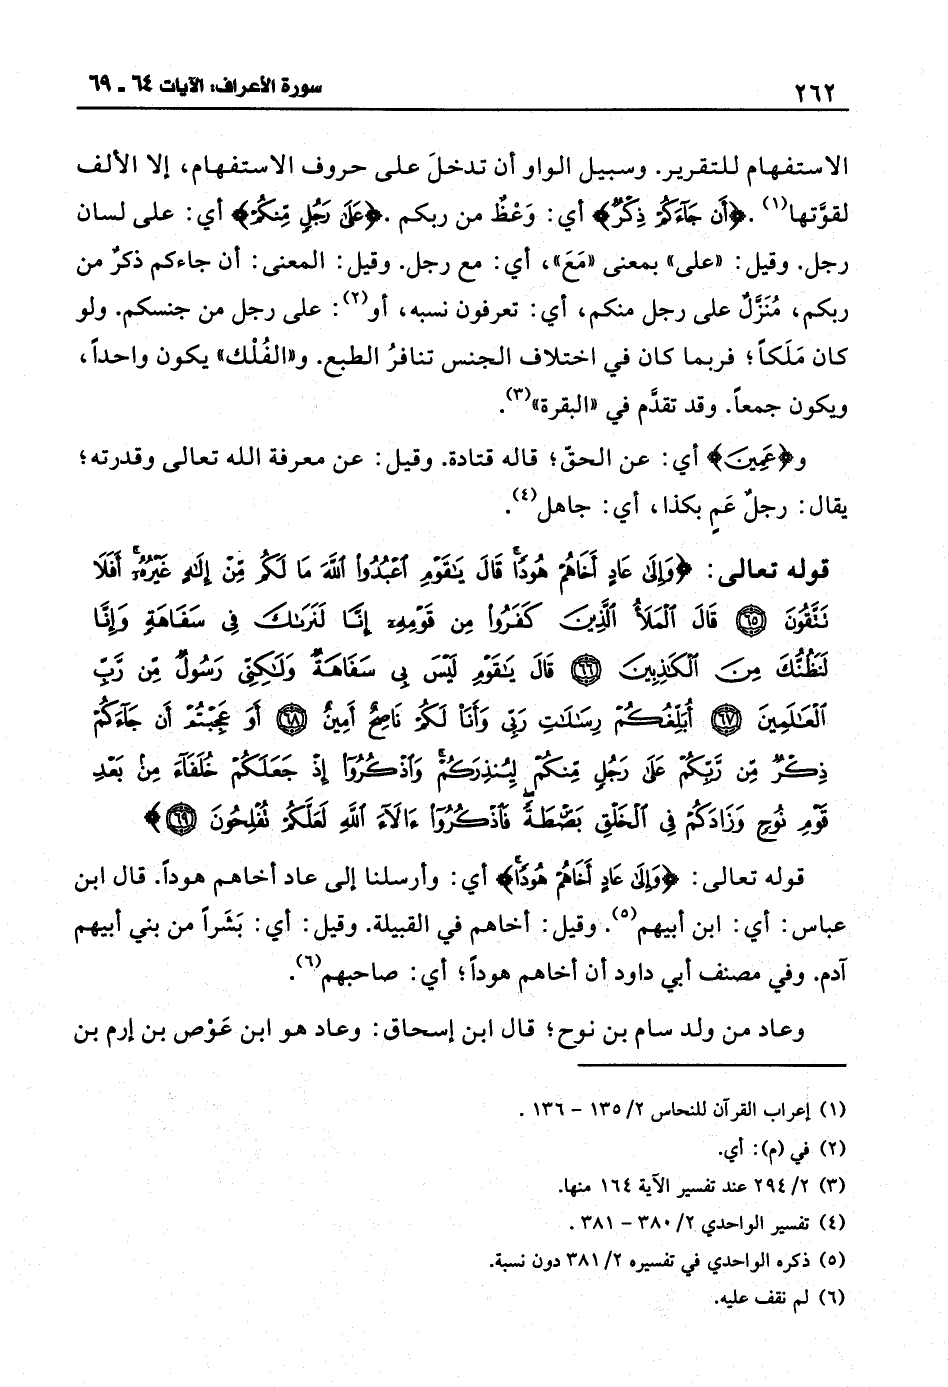 ٢٦٢ سورة الأعراف: الآيات ٦٤ ـ ٦٩
الاستفهام للتقرير. وسبيل الواو أن تدخلَ على حروف الاستفهام، إلا الألف
لقوَّتها(١). ﴿أَن جَآءَكُمْ ذِكْرٌ﴾ أي: وَعْظٌ من ربكم. ﴿عَلَىٰ رَجُلٍ مِّنكُمْ﴾ أي: على لسان
رجل. وقيل: «على» بمعنى «مَعَ»، أي: مع رجل. وقيل: المعنى: أن جاءكم ذكرٌ من
ربكم، مُنَزَّلٌ على رجل منكم، أي: تعرفون نسبه، أو(٢): على رجل من جنسكم. ولو
كان مَلَكاً؛ فربما كان في اختلاف الجنس تنافرُ الطبع. و«الفُلْك» يكون واحداً،
ويكون جمعاً. وقد تقدَّم في «البقرة»(٣).
و﴿عَمِينَ﴾ أي: عن الحقّ؛ قاله قتادة. وقيل: عن معرفة الله تعالى وقدرته؛
يقال: رجلٌ عَمٍ بكذا، أي: جاهل(٤).
قوله تعالى: ﴿وَإِلَىٰ عَادٍ أَخَاهُمْ هُودًا ۗ قَالَ يَٰقَوْمِ ٱعْبُدُوا۟ ٱللَّهَ مَا لَكُم مِّنْ إِلَٰهٍ غَيْرُهُۥٓ ۚ أَفَلَا
تَتَّقُونَ ٦٥ قَالَ ٱلْمَلَأُ ٱلَّذِينَ كَفَرُوا۟ مِن قَوْمِهِۦٓ إِنَّا لَنَرَىٰكَ فِى سَفَاهَةٍ وَإِنَّا
لَنَظُنُّكَ مِنَ ٱلْكَٰذِبِينَ ٦٦ قَالَ يَٰقَوْمِ لَيْسَ بِى سَفَاهَةٌ وَلَٰكِنِّى رَسُولٌ مِّن رَّبِّ
ٱلْعَٰلَمِينَ ٦٧ أُبَلِّغُكُمْ رِسَٰلَٰتِ رَبِّى وَأَنَا۠ لَكُمْ نَاصِحٌ أَمِينٌ ٦٨ أَوَ عَجِبْتُمْ أَن جَآءَكُمْ
ذِكْرٌ مِّن رَّبِّكُمْ عَلَىٰ رَجُلٍ مِّنكُمْ لِيُنذِرَكُمْ ۚ وَٱذْكُرُوٓا۟ إِذْ جَعَلَكُمْ خُلَفَآءَ مِنۢ بَعْدِ
قَوْمِ نُوحٍ وَزَادَكُمْ فِى ٱلْخَلْقِ بَصْۜطَةً ۖ فَٱذْكُرُوٓا۟ ءَالَآءَ ٱللَّهِ لَعَلَّكُمْ تُفْلِحُونَ ٦٩﴾
قوله تعالى: ﴿وَإِلَىٰ عَادٍ أَخَاهُمْ هُودًا ۗ﴾ أي: وأرسلنا إلى عاد أخاهم هوداً. قال ابن
عباس: أي: ابن أبيهم(٥). وقيل: أخاهم في القبيلة. وقيل: أي: بَشَراً من بني أبيهم
آدم. وفي مصنف أبي داود أن أخاهم هوداً؛ أي: صاحبهم(٦).
وعاد من ولد سام بن نوح؛ قال ابن إسحاق: وعاد هو ابن عَوْص بن إرم بن
(١) إعراب القرآن للنحاس ٢/ ١٣٥ – ١٣٦ .
(٢) في (م): أي.
(٣) ٢/ ٢٩٤ عند تفسير الآية ١٦٤ منها.
(٤) تفسير الواحدي ٢/ ٣٨٠ – ٣٨١ .
(٥) ذكره الواحدي في تفسيره ٢/ ٣٨١ دون نسبة.
(٦) لم نقف عليه.